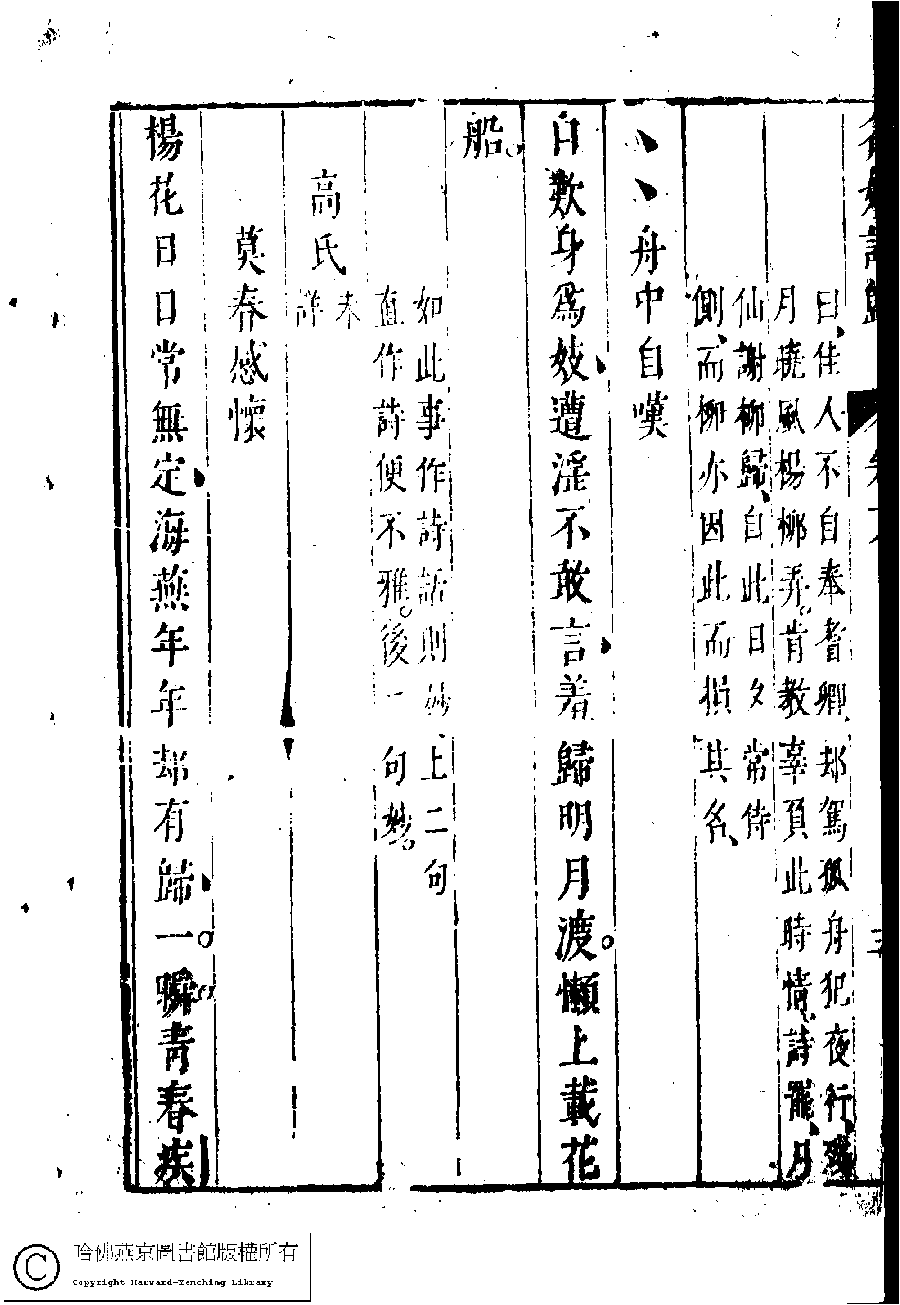 名媛詩歸
曰、佳人不自奉耆卿、却駕孤舟犯夜行、殘
月曉風楊柳弄。肯教辜負此時情、詩罷、月
仙謝柳歸、自此日夕常侍
側、而柳亦因此而損其名、
丶丶舟中自嘆
自歎身爲妓遭淫不敢言羞歸明月渡。懶上載花
船。
如此事作詩話則妙、上二句
直作詩便不雅。後一句妙。
高氏未詳
莫春感懷
楊花日日常無定海燕年年却有歸一瞬青春疾
哈佛燕京圖書館版權所有
Copyright Harvard-Yenching Library